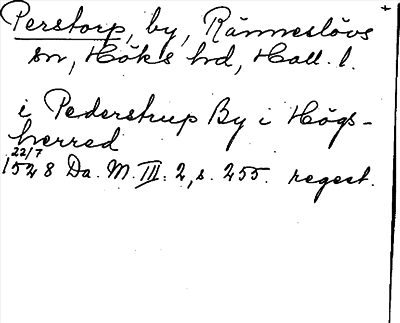 Perstorp, by, Ränneslövs
sn, Höks hd, Hall. l.
i Pederstrup By i Högs-
herred
22/7
1528 Da. M. III: 2, s. 255. regest.